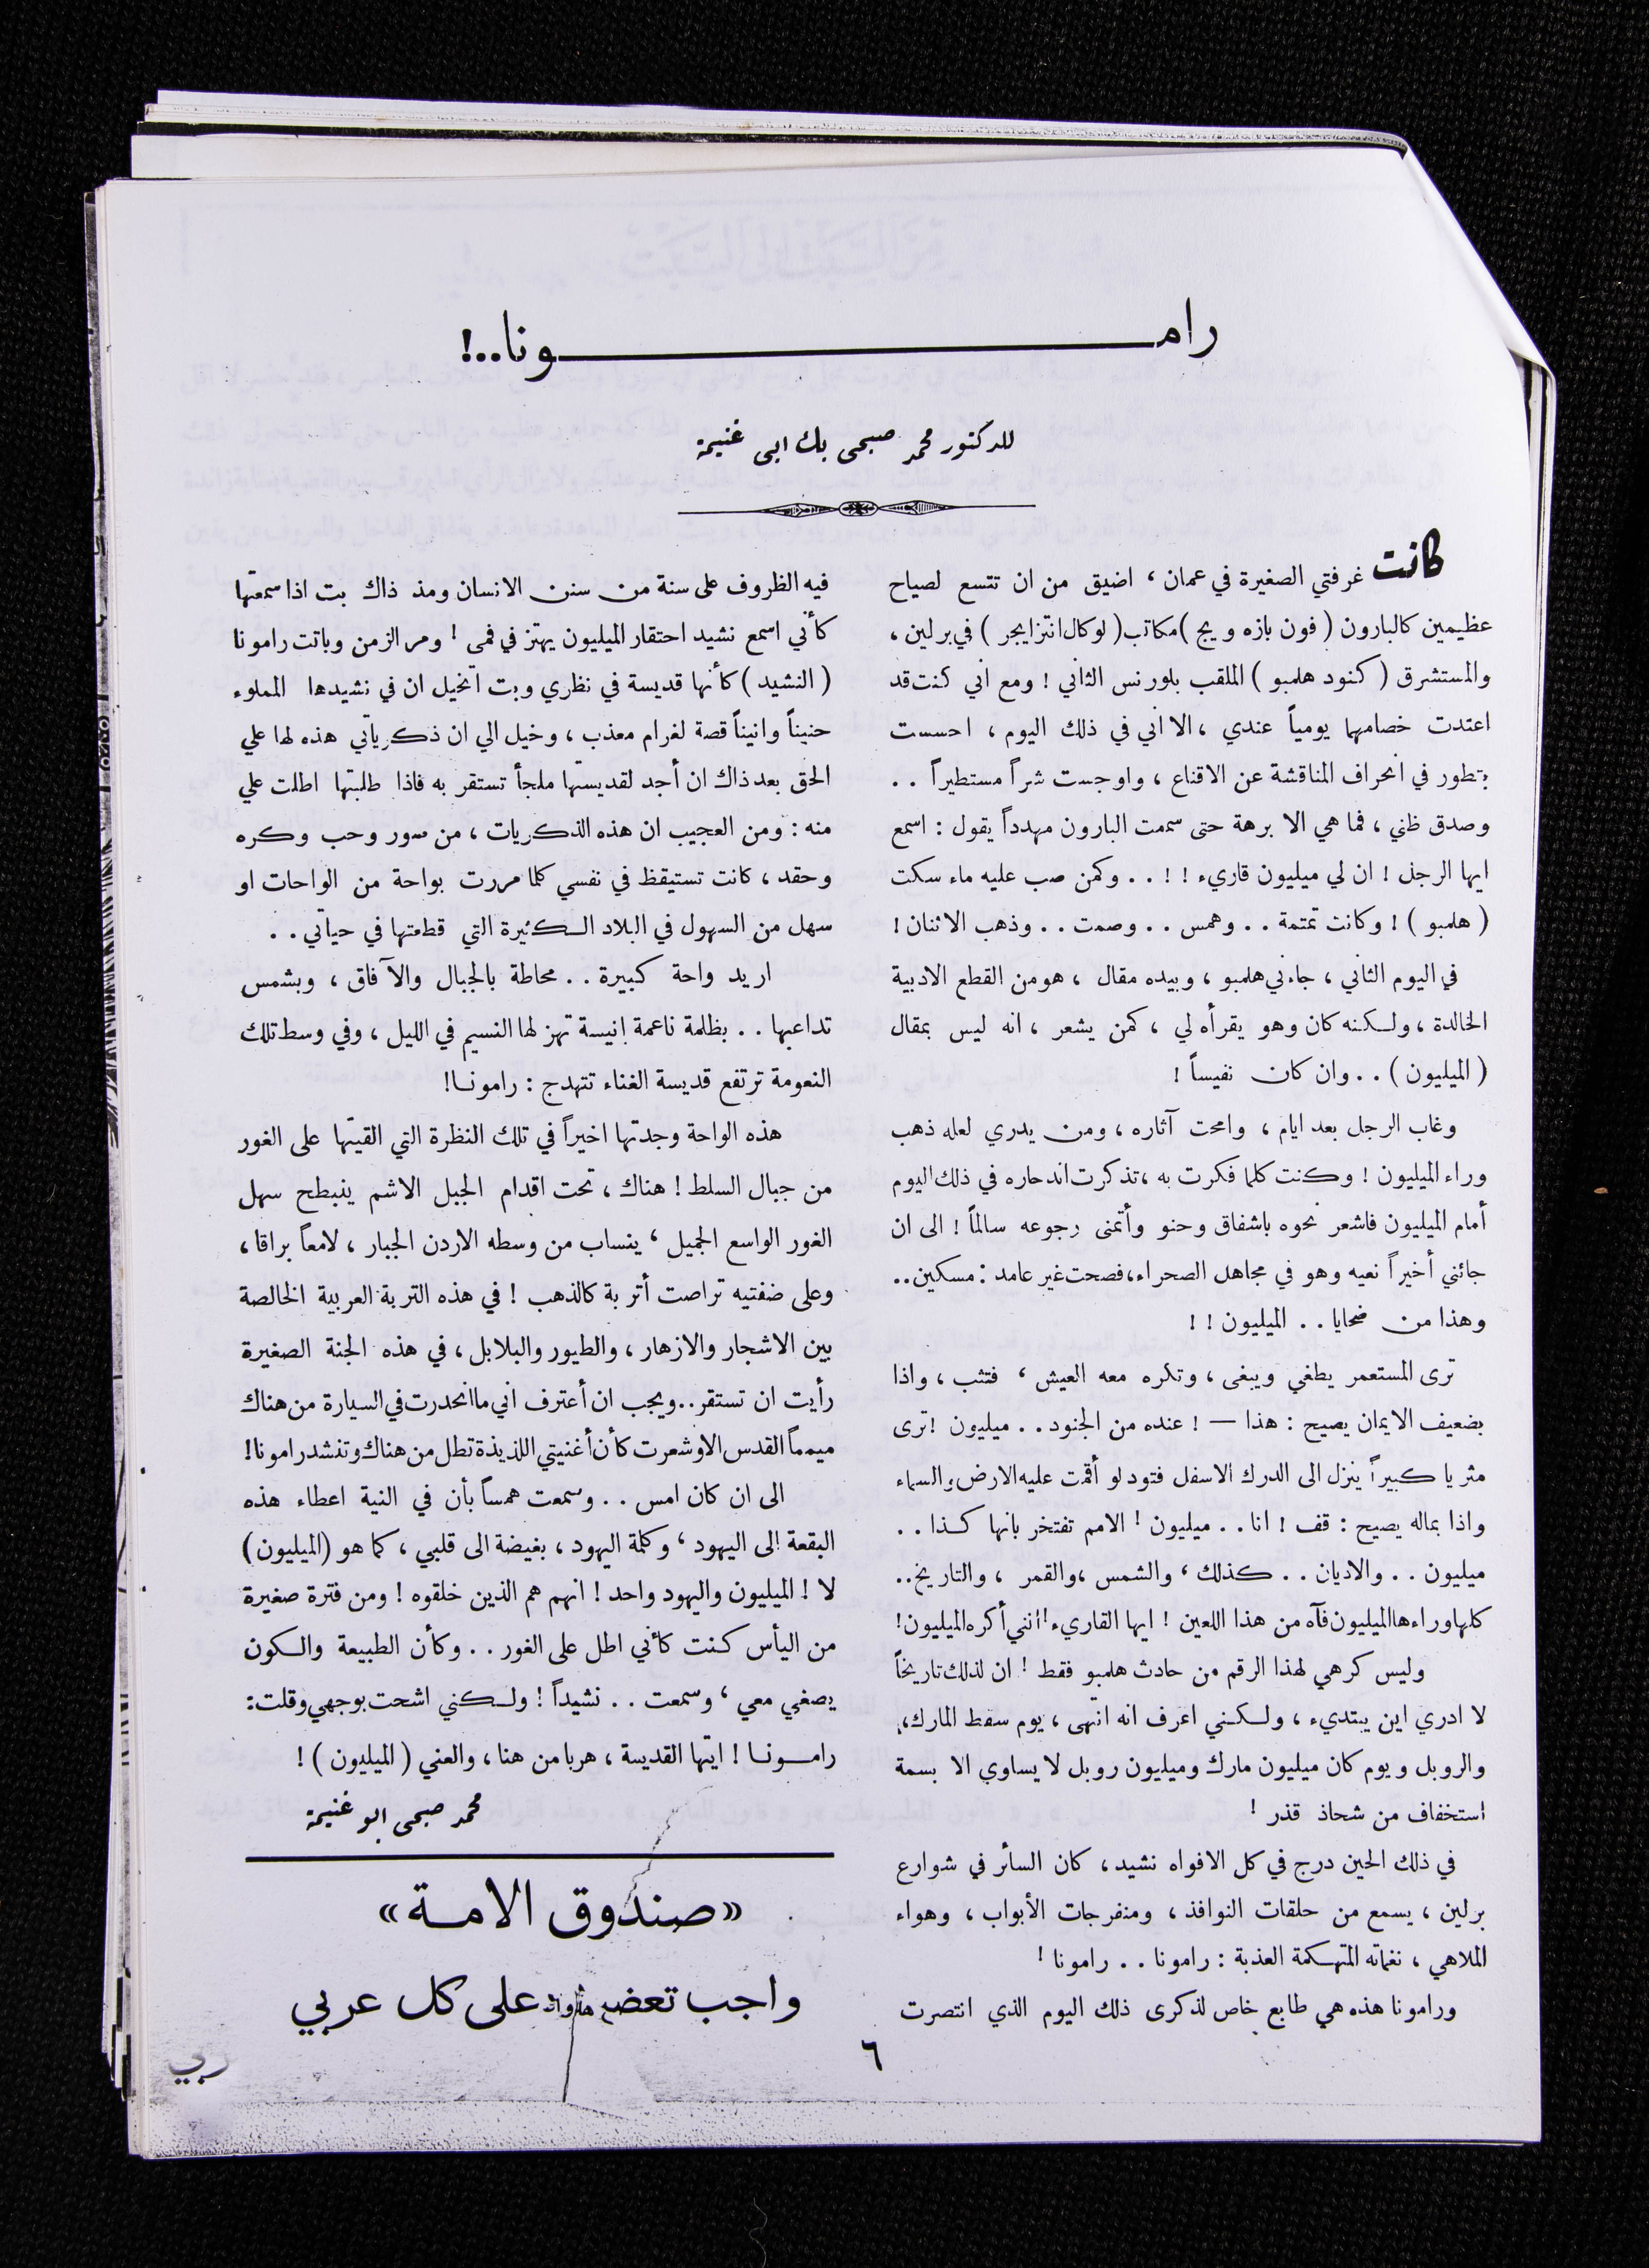 رامـــــــــونا..!
للدكتور محمد صبحى بك ابى غنيمة
كانت غرفتي الصغيرة في عمان ، اضيق من ان تتسع لصياح
عظيمين كالبارون ( فون بازه ويج ) مكاتب ( لوكال انتزايجر ) في برلين ،
والمستشرق ( كنود هلمبو ) الملقب بلورنس الثاني ! ومع اني كنت قد
اعتدت خصامهما يومياً عندي ، الا اني في ذلك اليوم ، احسست
بتطور في انحراف المناقشة عن الاقناع ، واوجست شراً مستطيراً . .
وصدق ظني ، فما هي الا برهة حتى سمعت البارون مهدداً يقول : اسمع
ايها الرجل ! ان لي ميليون قاريء ! ! . . وكمن صب عليه ماء سكت
( هلمبو ) ! وكانت تمتمة . . وهمس . . وصمت . . وذهب الاثنان !
في اليوم الثاني ، جاءني هلمبو ، وبيده مقال ، هو من القطع الادبية
الخالدة ، ولكنه كان وهو يقرأه لي ، كمن يشعر ، انه ليس بمقال
( الميليون ) . . وان كان نفيساً !
وغاب الرجل بعد ايام ، وامحت آثاره ، ومن يدري لعله ذهب
وراء الميليون ! وكنت كلما فكرت به ، تذكرت اندحاره في ذلك اليوم
أمام الميليون فاشعر نحوه باشفاق وحنو وأتمنى رجوعه سالماً ! الى ان
جائني أخيراً نعيه وهو في مجاهل الصحراء، فصحت غير عامد : مسكين ..
وهذا من ضحايا . . الميليون ! !
ترى المستعمر يطغي ويبغى ، وتكره معه العيش ، فتثب ، واذا
بضعيف الايمان يصيح : هذا — ! عنده من الجنود . . ميليون ! ترى
مثريا كبيراً ينزل الى الدرك الاسفل فتود لو أقمت عليه الارض والسماء
واذا بماله يصيح : قف ! انا . . ميليون ! الامم تفتخر بانها كذا . .
ميليون . . والاديان . . كذلك ، والشمس ، والقمر ، والتاريخ ..
كلها وراءها الميليون فآه من هذا اللعين ! ايها القاريء ! انني أكره الميليون !
وليس كرهي لهذا الرقم من حادث هلمبو فقط ! ان لذلك تاريخاً
لا ادري اين يبتديء ، ولكني اعرف انه انتهى ، يوم سقط المارك،
والروبل ويوم كان ميليون مارك وميليون روبل لا يساوي الا بسمة
استخفاف من شحاذ قذر !
في ذلك الحين درج في كل الافواه نشيد ، كان السائر في شوارع
برلين ، يسمع من حلقات النوافذ ، ومنفرجات الأبواب ، وهواء
الملاهي ، نغماته المتهكمة العذبة : رامونا . . رامونا !
ورامونا هذه هي طابع خاص لذكرى ذلك اليوم الذي انتصرت
فيه الظروف على سنة من سنن الانسان ومذ ذاك بت اذا سمعتها
كأني اسمع نشيد احتقار الميليون يهتز في فمى ! ومر الزمن وباتت رامونا
( النشيد ) كأنها قديسة في نظري وبت اتخيل ان في نشيدها المملوء
حنيناً وانيناً قصة لغرام معذب ، وخيل الي ان ذكرياتي هذه لها علي
الحق بعد ذاك ان أجد لقديستها ملجأ تستقر به فاذا طلبتها اطلت علي
منه : ومن العجيب ان هذه الذكريات ، من صور وحب وكره
وحقد ، كانت تستيقظ في نفسي كلما مررت بواحة من الواحات او
سهل من السهول في البلاد الكثيرة التي قطعتها في حياتي . .
اريد واحة كبيرة . . محاطة بالجبال والآفاق ، وبشمس
تداعبها . . بظلمة ناعمة انيسة تهز لها النسيم في الليل ، وفي وسط تلك
النعومة ترتفع قديسة الغناء تتهدج : رامونـا!
هذه الواحة وجدتها اخيراً في تلك النظرة التي القيتها على الغور
من جبال السلط ! هناك ، تحت اقدام الجبل الاشم ينبطح سهل
الغور الواسع الجميل ، ينساب من وسطه الاردن الجبار ، لامعاً براقا ،
وعلى ضفتيه تراصت أتربة كالذهب ! في هذه التربة العربية الخالصة
بين الاشجار والازهار ، والطيور والبلابل ، في هذه الجنة الصغيرة
رأيت ان تستقر .. ويجب ان أعترف اني ما انحدرت في السيارة من هناك
ميمماً القدس الا وشعرت كأن أغنيتي اللذيذة تطل من هناك وتنشد رامونا!
الى ان كان امس . . وسمعت همساً بأن في النية اعطاء هذه
البقعة الى اليهود ، وكلمة اليهود ، بغيضة الى قلبي ، كما هو (الميليون)
لا ! الميليون واليهود واحد ! انهم هم الذين خلقوه ! ومن فترة صغيرة
من اليأس كنت كأني اطل على الغور . . وكأن الطبيعة والكون
يصغي معي ، وسمعت . . نشيداً ! ولكني اشحت بوجهي وقلت :
رامـونـا ! ايتها القديسة ، هربا من هنا ، والعني ( الميليون ) !
محمد صبحى ابو غنيمة
«صندوق الامـة»
واجب تعضـ على كل عربي
٦
ربي